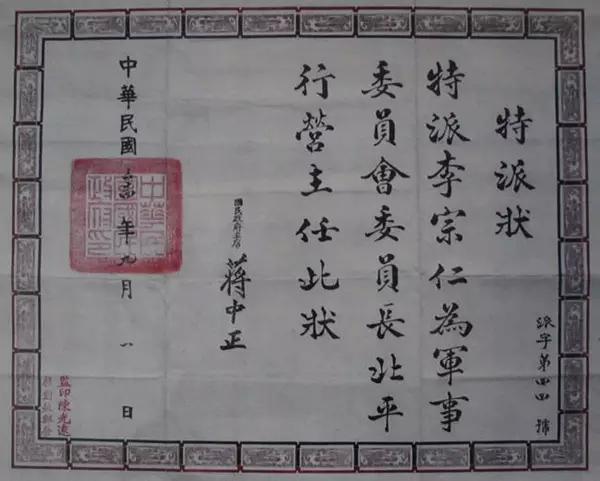 派字第四四號
特派狀
特派李宗仁為軍事
委員會委員長北平
行營主任此狀
國民政府主席 蔣中正
中華民國 年九月一日
監印陳光遠